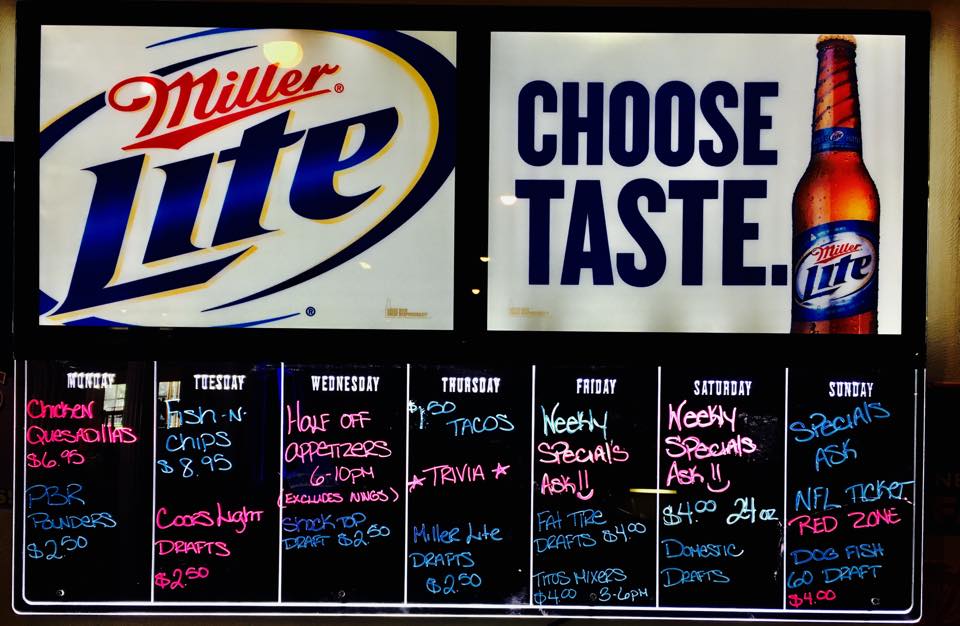 Miller ®
Lite
®
CHOOSE
TASTE.
Miller
Lite
MONDAY
Chicken
Quesadillas
$6.95
PBR
Pounders
$2.50
TUESDAY
Fish-N-
Chips
$8.95
Coors Light
Drafts
$2.50
WEDNESDAY
Half off
Appetizers
6-10pm
(Excludes Nings)
Shock Top
Draft $2.50
THURSDAY
$1.50
Tacos
★TRIVIA★
Miller Lite
Drafts
$2.50
FRIDAY
Weekly
Specials
Ask!!
Fat Tire
Drafts $4.00
Titos Mixers
$4.00 3-6pm
SATURDAY
Weekly
Specials
Ask!!
$4.00 24oz
Domestic
Drafts
SUNDAY
Specials
Ask
NFL Ticket
Red Zone
Dog Fish
60 Draft
$4.00